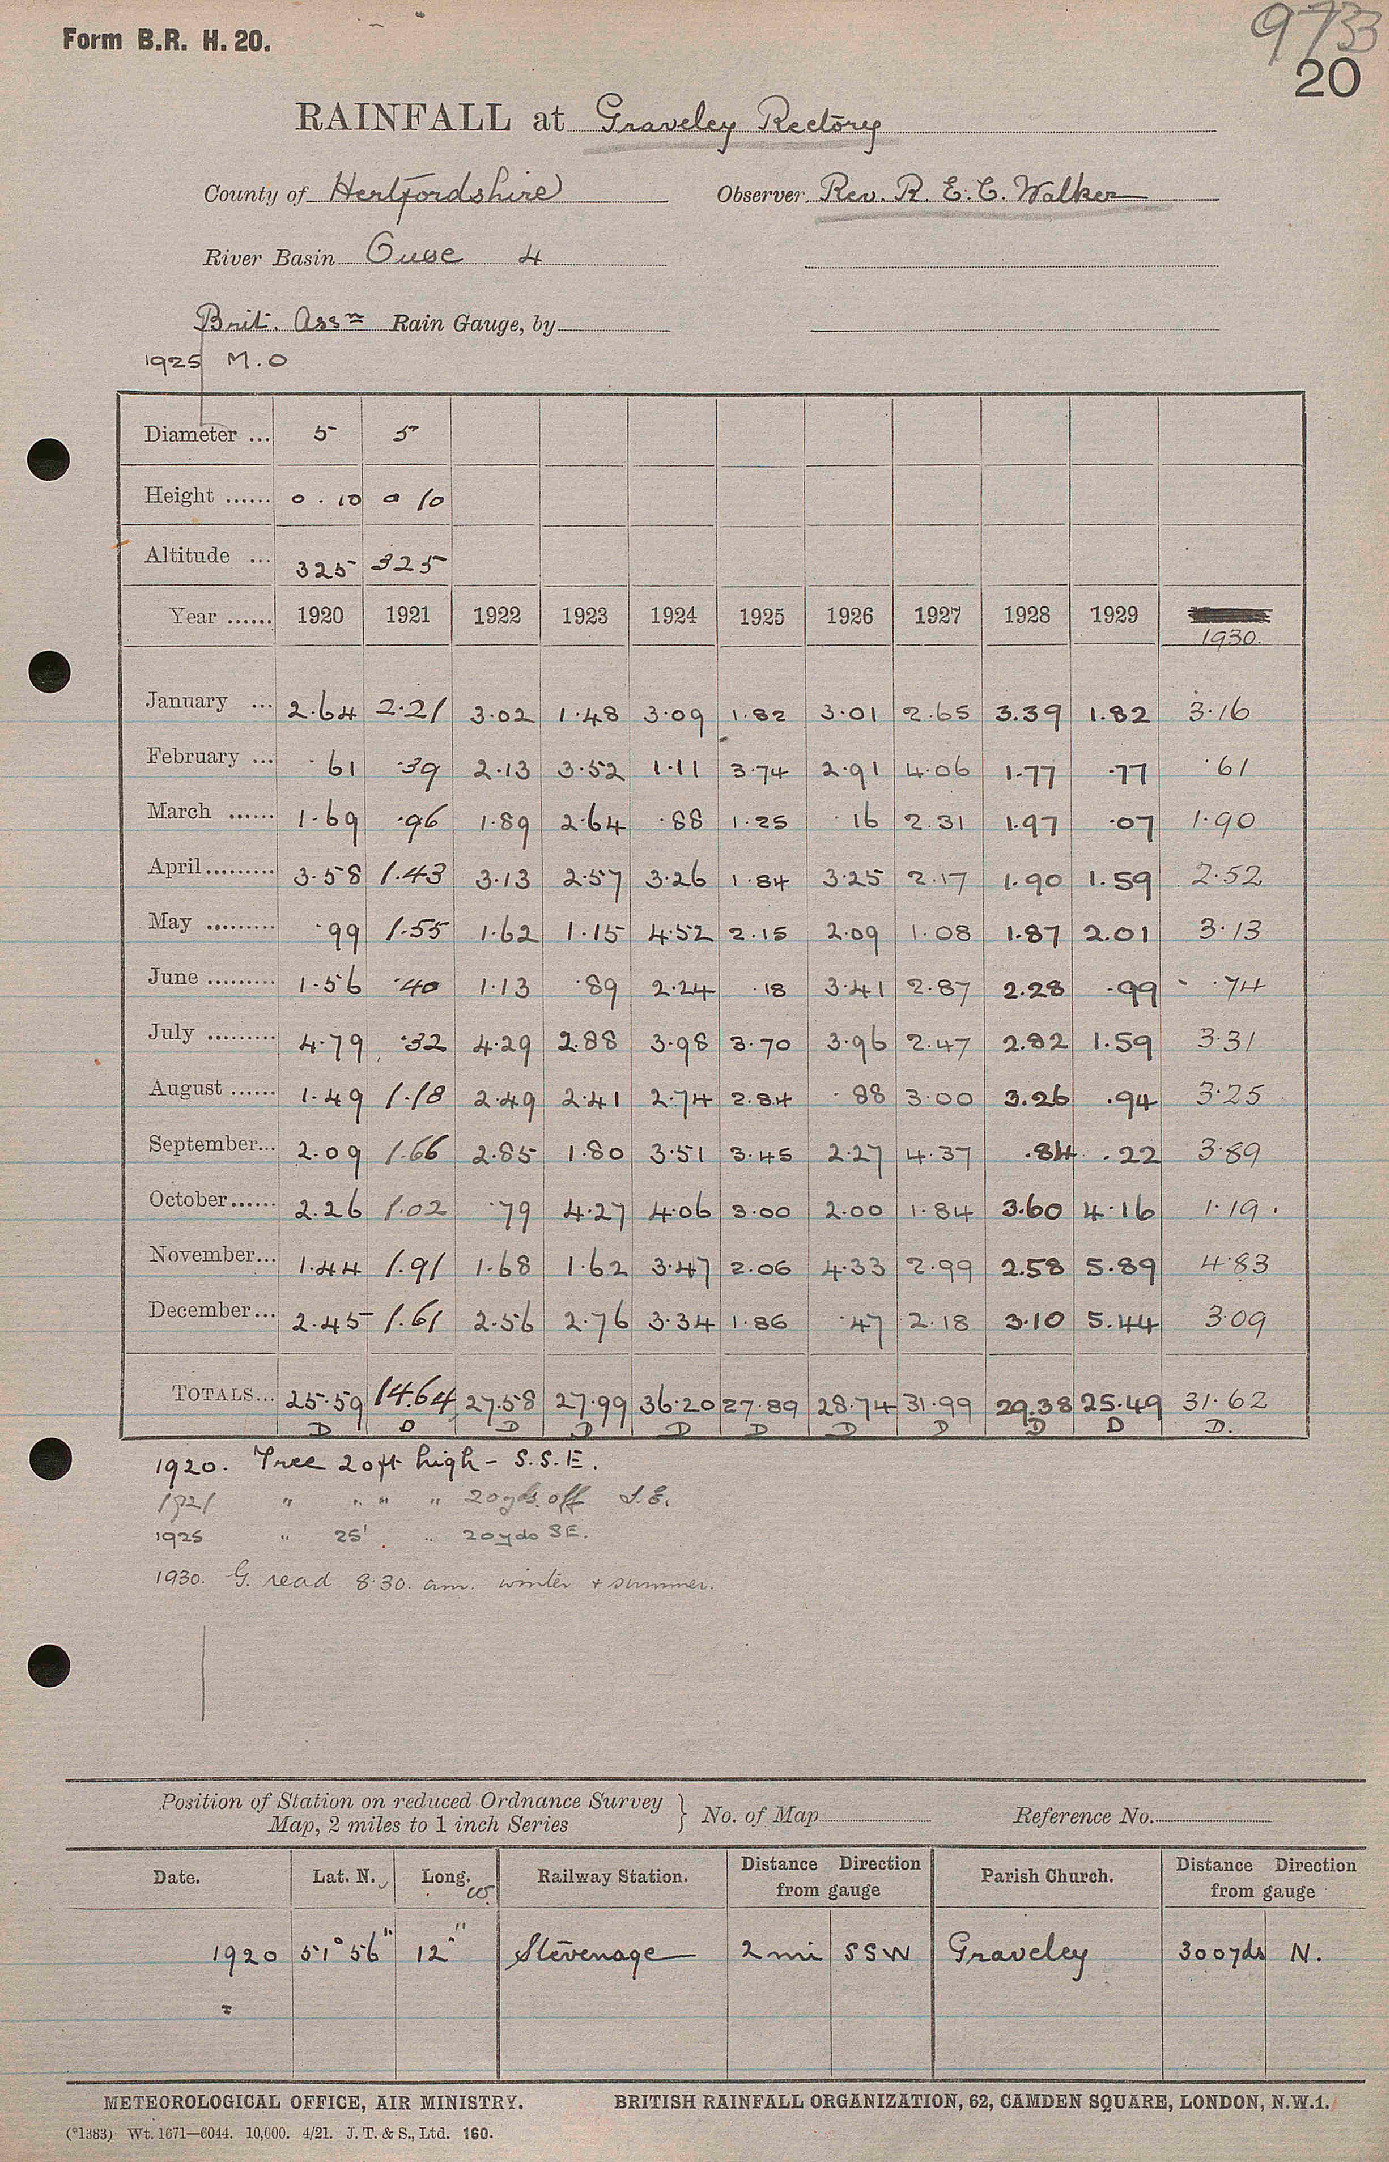 Form B.R. H. 20.
9733
20
RAINFALL at Graveley Rectory
County of Hertfordshire Observer Rev. R. E. C. Walker
River Basin Ouse 4
Brit. Assn Rain Gauge, by
1925 M.O
Diameter ... 5 5
Height ...... 0 . 10 0 10
Altitude ... 325 325
Year ...... 1920 1921 1922 1923 1924 1925 1926 1927 1928 1929 1930.
January ... 2.64 2.21 3.02 1.48 3.09 1.82 3.01 2.65 3.39 1.82 3.16
February ... .61 .39 2.13 3.52 1.11 3.74 2.91 4.06 1.77 .77 .61
March ...... 1.69 .96 1.89 2.64 .88 1.25 .16 2.31 1.97 .07 1.90
April ......... 3.58 1.43 3.13 2.57 3.26 1.84 3.25 2.17 1.90 1.59 2.52
May ......... .99 1.55 1.62 1.15 4.52 2.15 2.09 1.08 1.87 2.01 3.13
June ......... 1.56 .40 1.13 .89 2.24 .18 3.41 2.87 2.28 .99 .74
July ......... 4.79 .32 4.29 2.88 3.98 3.70 3.96 2.47 2.82 1.59 3.31
August ...... 1.49 1.18 2.49 2.41 2.74 2.84 .88 3.00 3.26 .94 3.25
September... 2.09 1.66 2.85 1.80 3.51 3.45 2.27 4.37 .84 .22 3.89
October ...... 2.26 1.02 .79 4.27 4.06 3.00 2.00 1.84 3.60 4.16 1.19.
November... 1.44 1.91 1.68 1.62 3.47 2.06 4.33 2.99 2.58 5.89 4.83
December... 2.45 1.61 2.56 2.76 3.34 1.86 .47 2.18 3.10 5.44 3.09
TOTALS... 25.59 14.64 27.58 27.99 36.20 27.89 28.74 31.99 29.38 25.49 31.62
D D D D D D D D D D D.
1920. Tree 20ft high - S.S.E.
1921 " " " " 20yds. off S.E.
1925 " 25' " 20yds SE.
1930. G. read 8.30. am. winter + summer.
Position of Station on reduced Ordnance Survey
Map, 2 miles to 1 inch Series } No. of Map Reference No.
Date. Lat. N. Long. W. Railway Station. Distance Direction from gauge Parish Church. Distance Direction from gauge
1920 51° 56" 12" Stevenage 2 mi SSW Graveley 300yds N.
METEOROLOGICAL OFFICE, AIR MINISTRY. BRITISH RAINFALL ORGANIZATION, 62, CAMDEN SQUARE, LONDON, N.W.1.
(*1383) Wt. 1671—6044. 10,000. 4/21. J. T. & S., Ltd. 160.